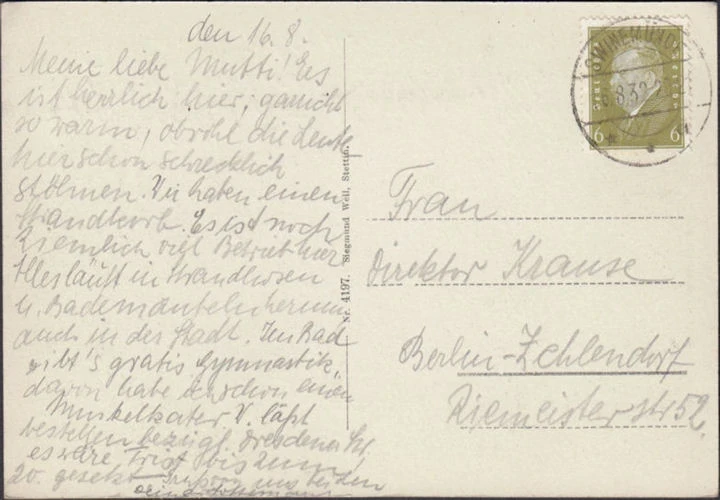 den 16. 8.
Meine liebe Mutti! Es
ist herrlich hier, garnicht
so warm, obwohl die Leute
hier schon schrecklich
stöhnen. Wir haben einen
Strandkorb. Es ist noch
ziemlich viel Betrieb hier
Alles läuft in Strandhosen
u. Bademänteln herum
auch in der Stadt. Im Bad
gibt's gratis Gymnastik,
davon habe ich schon einen
Muskelkater. V. läßt
bestellen bezügl. Dresdener
es wäre Frist bis zum
20. gesetzt von uns beiden
Nr. 4197. Siegmund Weil, Stettin.
SWINEMÜNDE
8.32
Deutsches Reich
6 6
Frau
Direktor Krause
Berlin-Zehlendorf
Riemeisterstr 52.